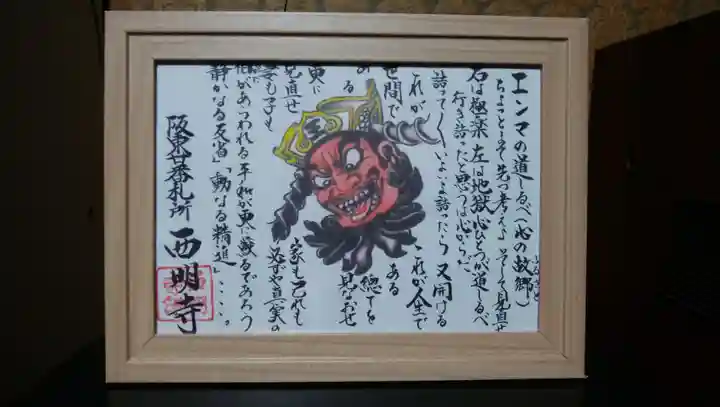 エンマの道しるべ(心の故郷)
ふるさと
ちょっとまて先づ考えよそして見直せ
右は極楽 左は地獄心ひとつが道しるべ
行き詰ったと思うは心からだ
詰ってしまいよいよ詰ったら 又開ける
これが これが人生で
ある ある
世間で 総てを
更に 見なおせ
見直せ 家も己れも
妻も子も 必ずや真実の
相があらわれる平和が更に蘇るであろう
静かなる反省」「動なる精進」・・・。
阪東廿番札所 西明寺